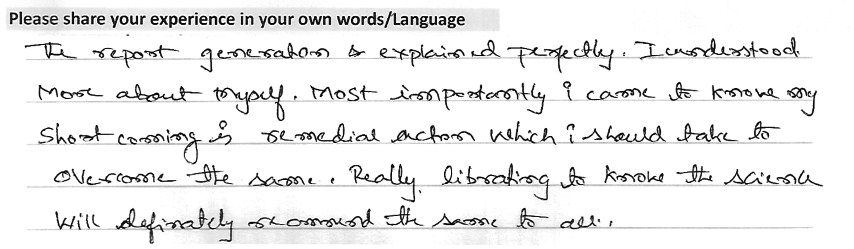 Please share your experience in your own words/Language
The report generation & explained perfectly. I understood
More about myself. Most importantly i came to know my
Short coming & remedial action which i should take to
Overcome the same. Really librating to know the science
Will definately recommend the same to all.